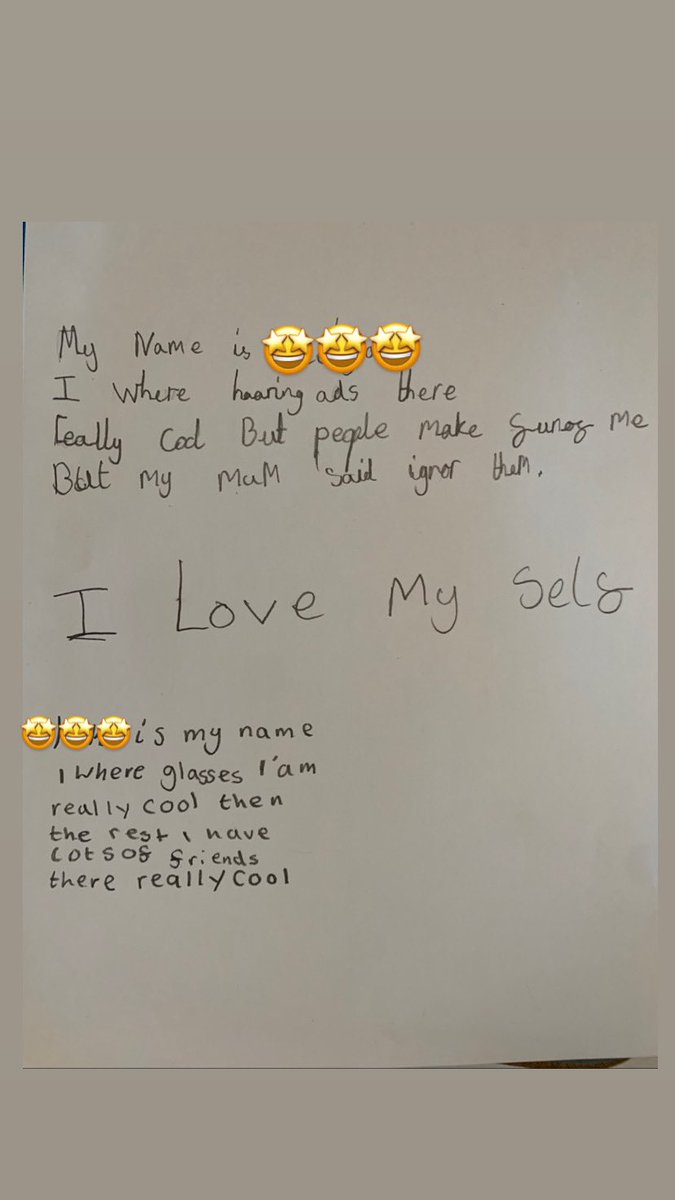 My Name is
I where haaring ads there
really Cool But people make funof me
But my mum said ignor them.
I Love My Self
is my name
I where glasses I'am
really cool then
the rest I have
Lots of friends
there really cool